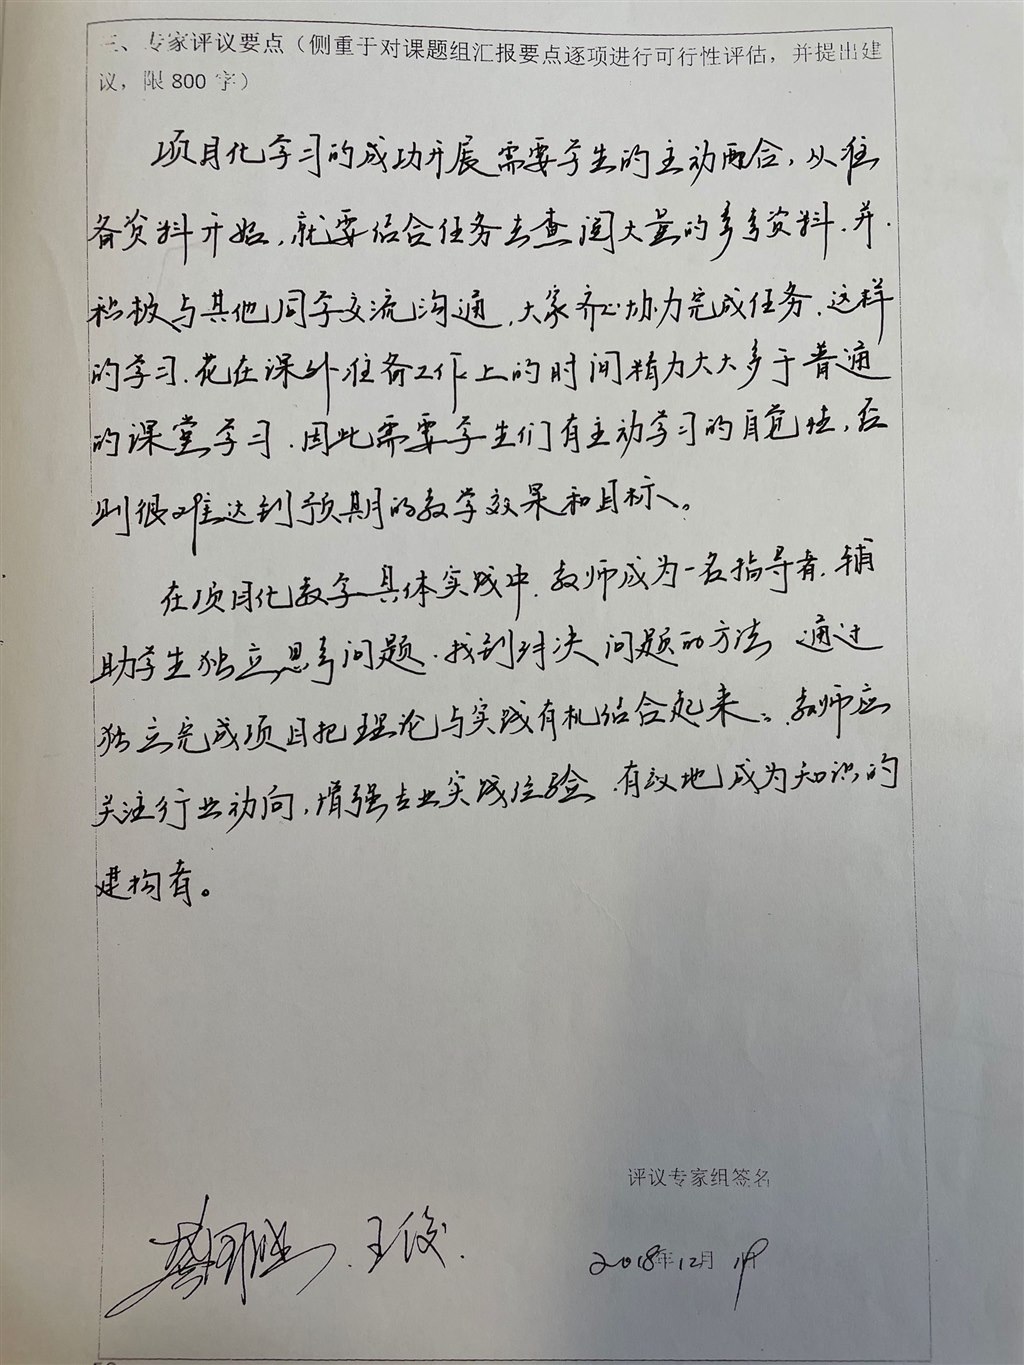 三、专家评议要点（侧重于对课题组汇报要点逐项进行可行性评估，并提出建
议，限 800 字）
项目化学习的成功开展需要学生的主动配合，从准
备资料开始，就要结合任务去查阅大量的参考资料，并
积极与其他同学交流沟通，大家齐心协力完成任务，这样
的学习，花在课外准备工作上的时间精力大大多于普通
的课堂学习，因此需要学生们有主动学习的自觉性，否
则很难达到预期的教学效果和目标。
在项目化教学具体实践中，教师成为一名指导者，辅
助学生独立思考问题，找到解决问题的方法 通过
独立完成项目把理论与实践有机结合起来。教师应
关注行业动向，增强专业实践经验，有效地成为知识的
建构者。
评议专家组签名
王俊
2018年12月 日